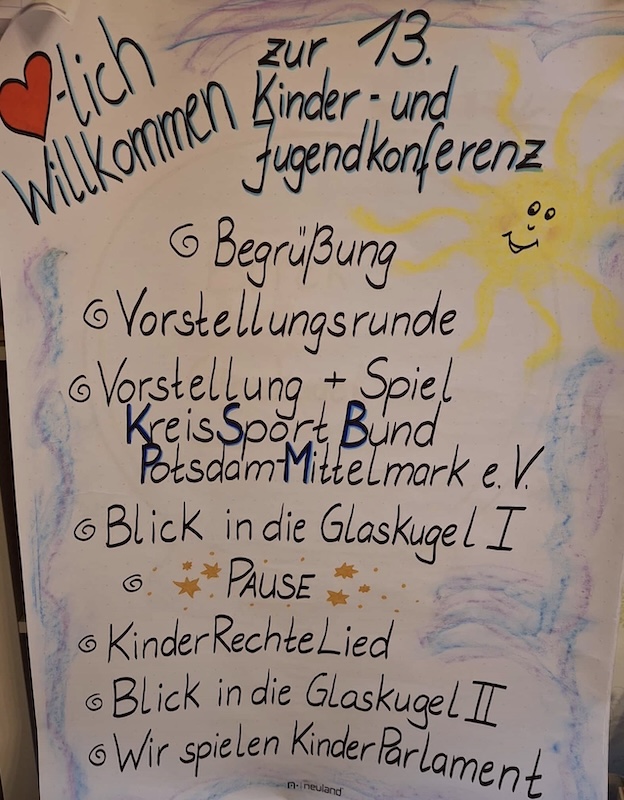 ❤-lich
Willkommen
zur 13.
Kinder-und
Jugendkonferenz
Begrüßung
Vorstellungsrunde
Vorstellung + Spiel
KreisSport Bund
Potsdam-Mittelmark e.V.
Blick in die Glaskugel I
PAUSE
KinderRechteLied
Blick in die Glaskugel II
Wir spielen KinderParlament
neuland